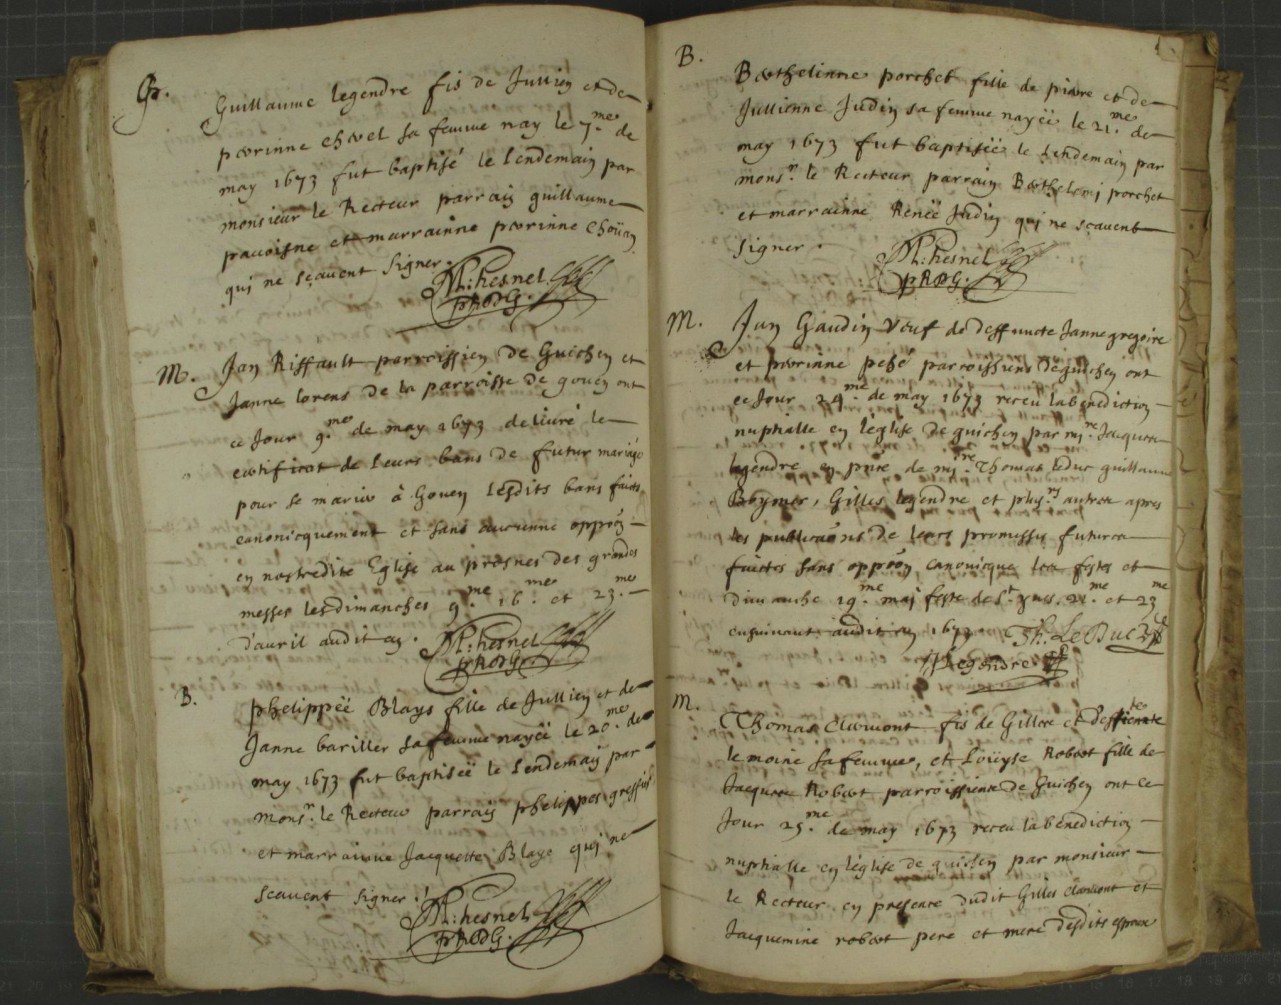 B.
Guillaume legendre fis de Jullien et de
perrinne chevel sa femme nay le 7.me de
may 1673 fut baptisé le lendemain par
monsieur le Recteur parrain guillaume
pavoisne et marrainne perrinne Choüan
qui ne sçavent signer.
M: hesnel
pRDG.
M.
Jan Riffault parroissien de Guichen et
Janne lorens de la parroisse de goven ont
ce Jour 9.me de may 1673 delivré le
certificat de leurs bans de futur mariage
pour se marier à Goven lesdits bans faicts
canonicquement et sans aucunne oppoon
en nostredite Eglise au prosnes des grandes
messes les dimanches 9.me 16.me et 23.me
d'avril audit an.
M: hesnel
pRDG.
B.
phelippëe Blays fille de Jullien et de
Janne bariller sa femme nayëe le 20.me de
may 1673 fut baptisëe le lendemain par
mons.r le Recteur parrain phelippes
et marrainne Jacquette Blays qui ne
scavent signer.
M: hesnel
pRDG.
B.
Berthelinne porchet fille de pierre et de
Jullienne Judin sa femme nayëe le 21.me de
may 1673 fut baptisëe le lendemain par
mons.r le Recteur parrain Berthelemj porchet
et marrainne Renëe Judin qui ne scavent
signer.
M: hesnel
pRDG.
M.
Jan Gaudin veuf de deffuncte Janne gregoire
et perrinne parroissiens de guichen ont
ce Jour 29.me de may 1673 receu la benediction
nuptialle en l'église de guichen par Jacques
legendre en de Thomas Leduc guillaume
Gilles legendre et plus.rs autres apres
les publicaons de leurs promesses futures
faictes sans oppoon canonicque les festes et
dimanche 19.me maj feste de S.t 21.me et 23.me
ensuivant audit an 1673. Th. LeDuc
Legendre
M.
Thomas Clermont fis de Gilles et deffuncte
le moine sa femme, et Loüyse Robert fille de
Jacques Robert parroissiens de Guichen ont ce
Jour 29.me de may 1673 receu la benediction
nuptialle en l'église de guichen par monsieur
le Recteur en presence dudit Gilles clermont et
Jacquemine robert pere et mere desdits espoux